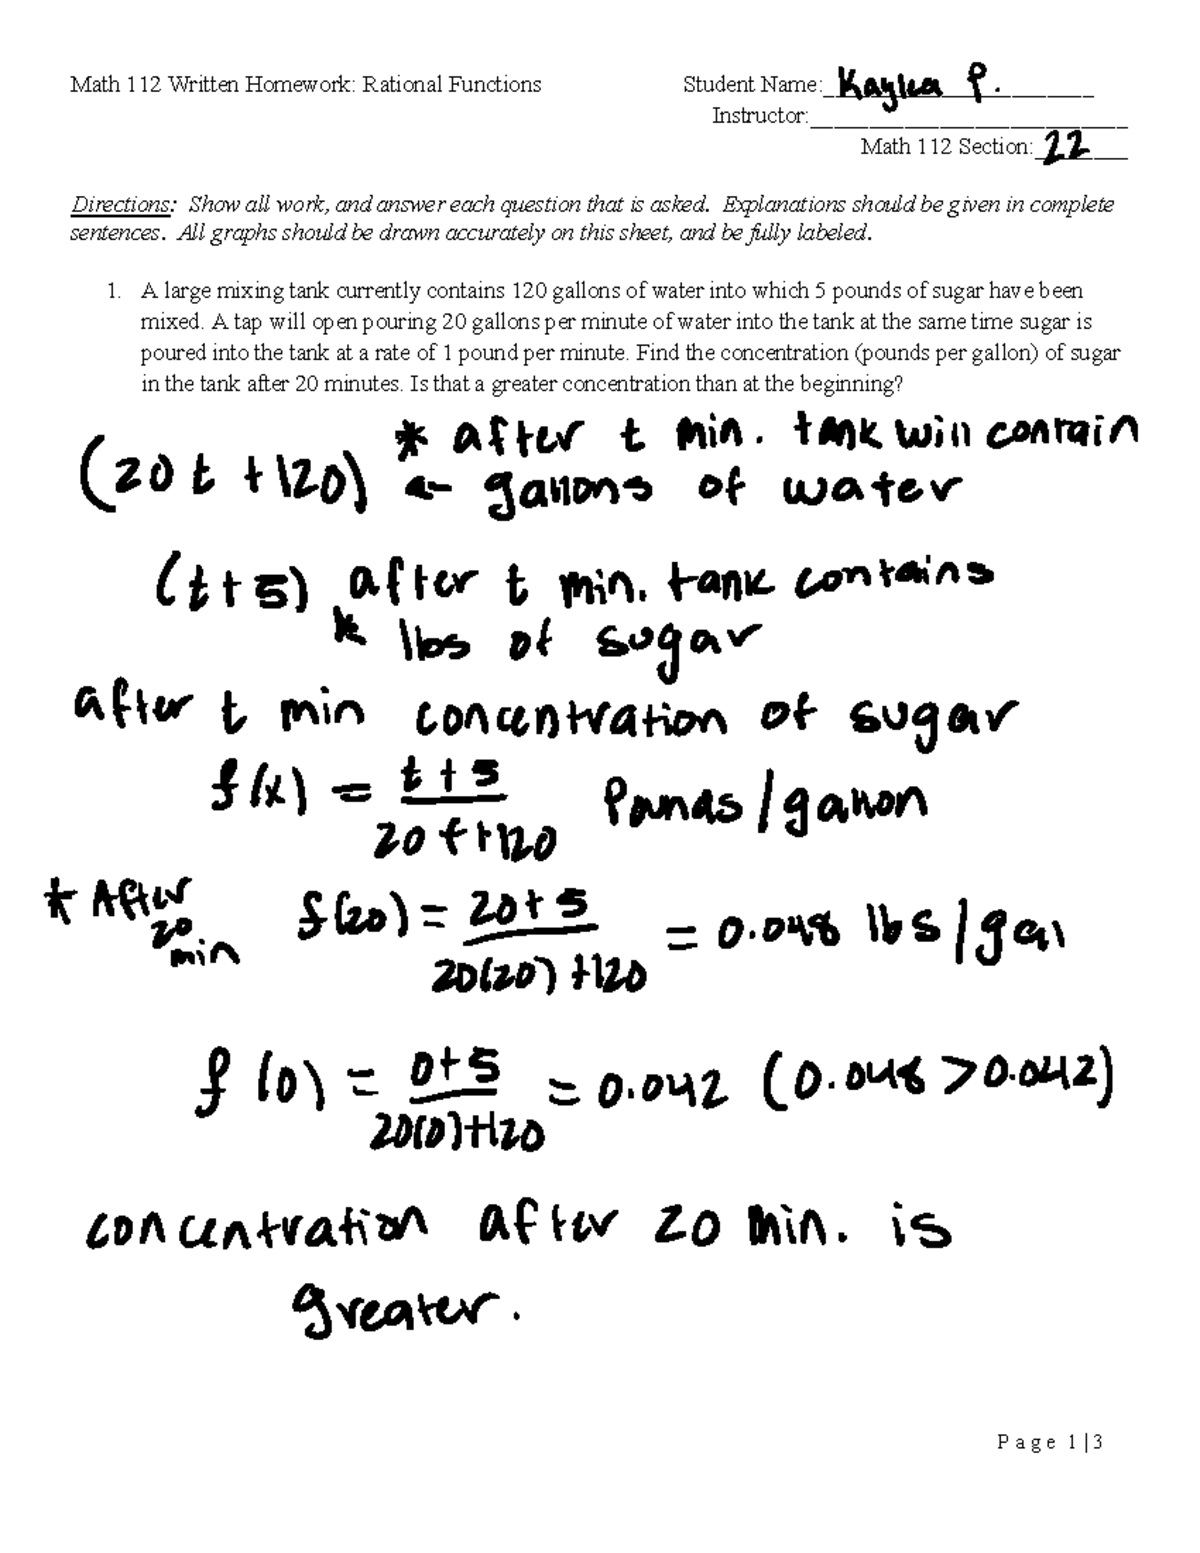 Math 112 Written Homework: Rational Functions
Student Name: Kaylea P.
Instructor:
Math 112 Section: 22
Directions: Show all work, and answer each question that is asked. Explanations should be given in complete
sentences. All graphs should be drawn accurately on this sheet, and be fully labeled.
1. A large mixing tank currently contains 120 gallons of water into which 5 pounds of sugar have been
mixed. A tap will open pouring 20 gallons per minute of water into the tank at the same time sugar is
poured into the tank at a rate of 1 pound per minute. Find the concentration (pounds per gallon) of sugar
in the tank after 20 minutes. Is that a greater concentration than at the beginning?
* after t min. tank will contain
(20t+120) ← gallons of water
(t+5) * after t min. tank contains
lbs of sugar
after t min concentration of sugar
f(x) = t+5 / 20t+120 Pounds/gallon
* After 20 min f(20) = 20+5 / 20(20)+120 = 0.048 lbs/gal
f(0) = 0+5 / 20(0)+120 = 0.042 (0.048 > 0.042)
concentration after 20 min. is
greater.
Page 1|3